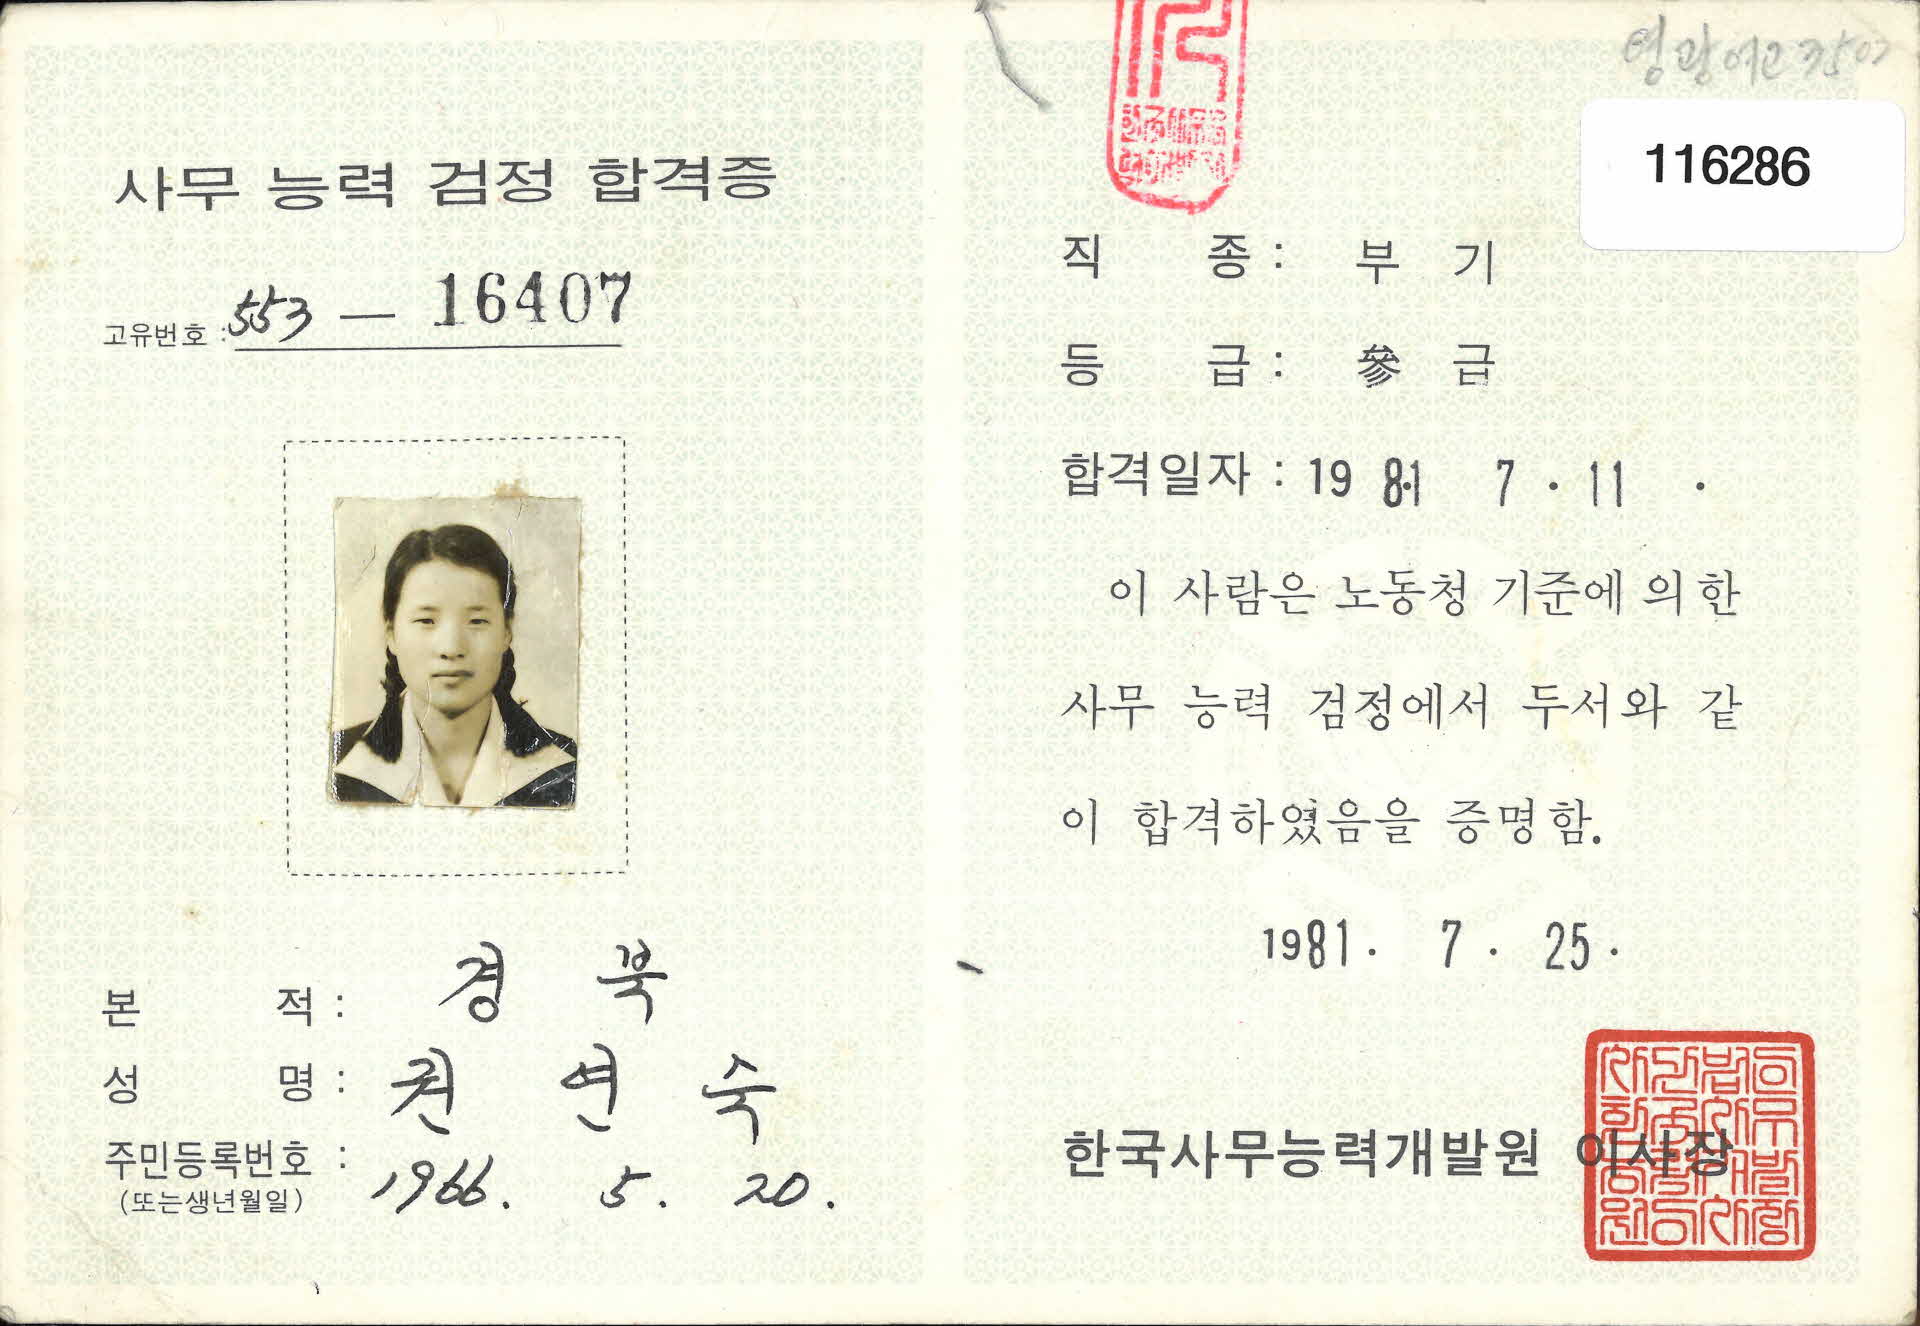 사무 능력 검정 합격증
고유번호 : 553 — 16407
본 적 : 경 북
성 명 : 권 연 숙
주민등록번호 : 1966. 5. 20.
(또는생년월일)
116286
직 종 : 부 기
등 급 : 參 급
합격일자 : 1981 7 · 11 ·
이 사람은 노동청 기준에 의한
사무 능력 검정에서 두서와 같
이 합격하였음을 증명함.
1981 · 7 · 25 ·
한국사무능력개발원 이사장